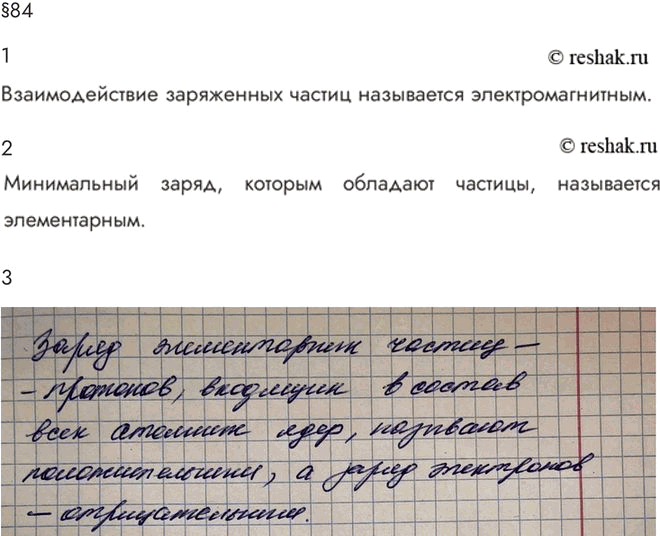 §84
1
© reshak.ru
Взаимодействие заряженных частиц называется электромагнитным.
2
© reshak.ru
Минимальный заряд, которым обладают частицы, называется
элементарным.
3
Заряд элементарных частиц –
– протонов, входящих в состав
всех атомных ядер, называют
положительным, а заряд электронов
– отрицательным.